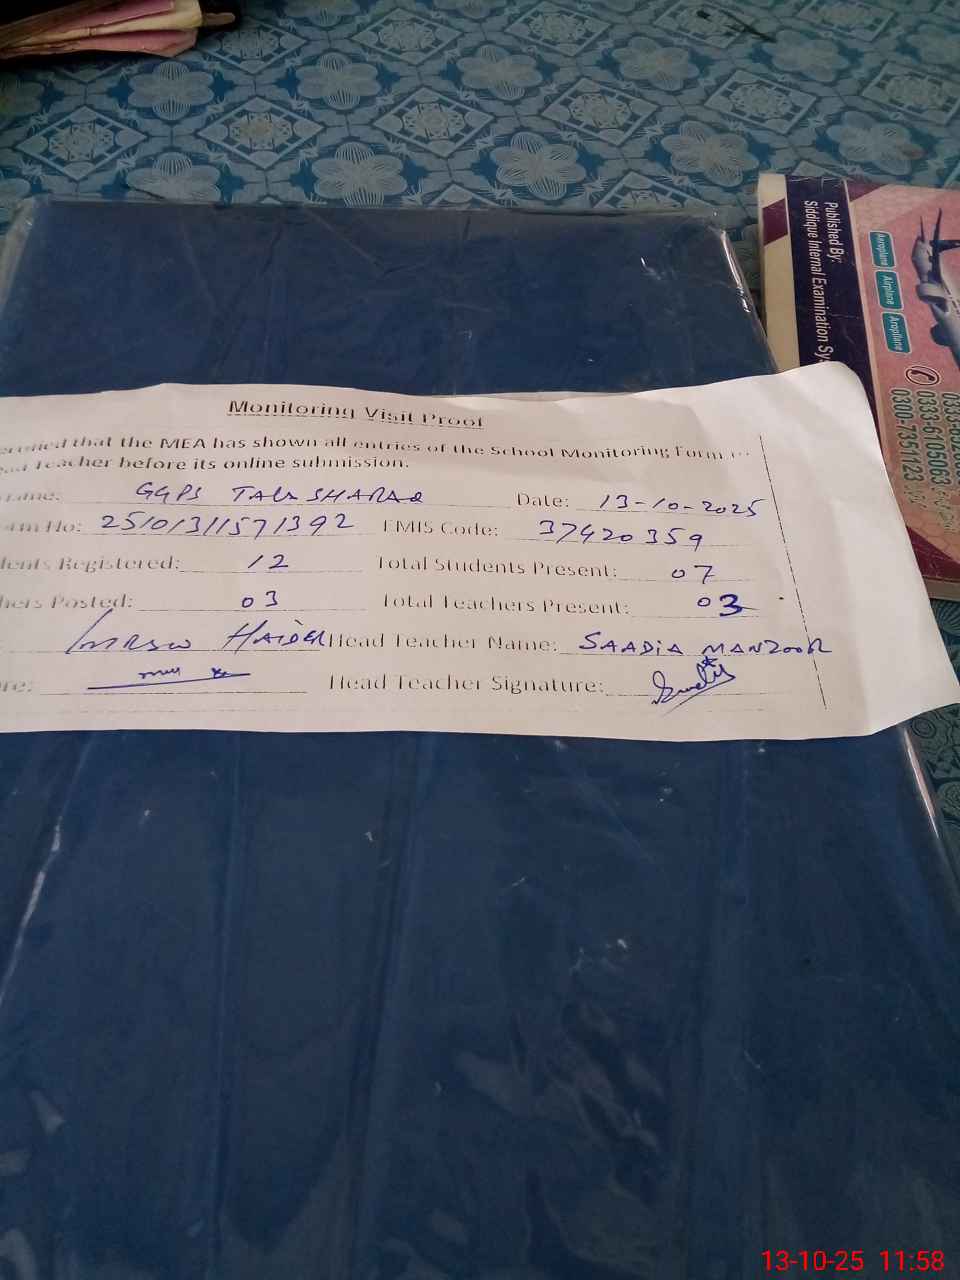 Monitoring Visit Proof
that the MEA has shown all entries of the School Monitoring Form
Teacher before its online submission.
GGPS TALA SHARAQ Date: 13-10-2025
No: 25101311571392 EMIS Code: 37420359
Registered: 12 Total Students Present: 07
Posted: 03 Total Teachers Present: 03
HAIDER Head Teacher Name: SAADIA MANZOOR
Head Teacher Signature:
Published By:
Siddique Internal Examination
Aeroplane
Airplane
Aroplane
0333-6105063
0300-7351123
13-10-25 11:58